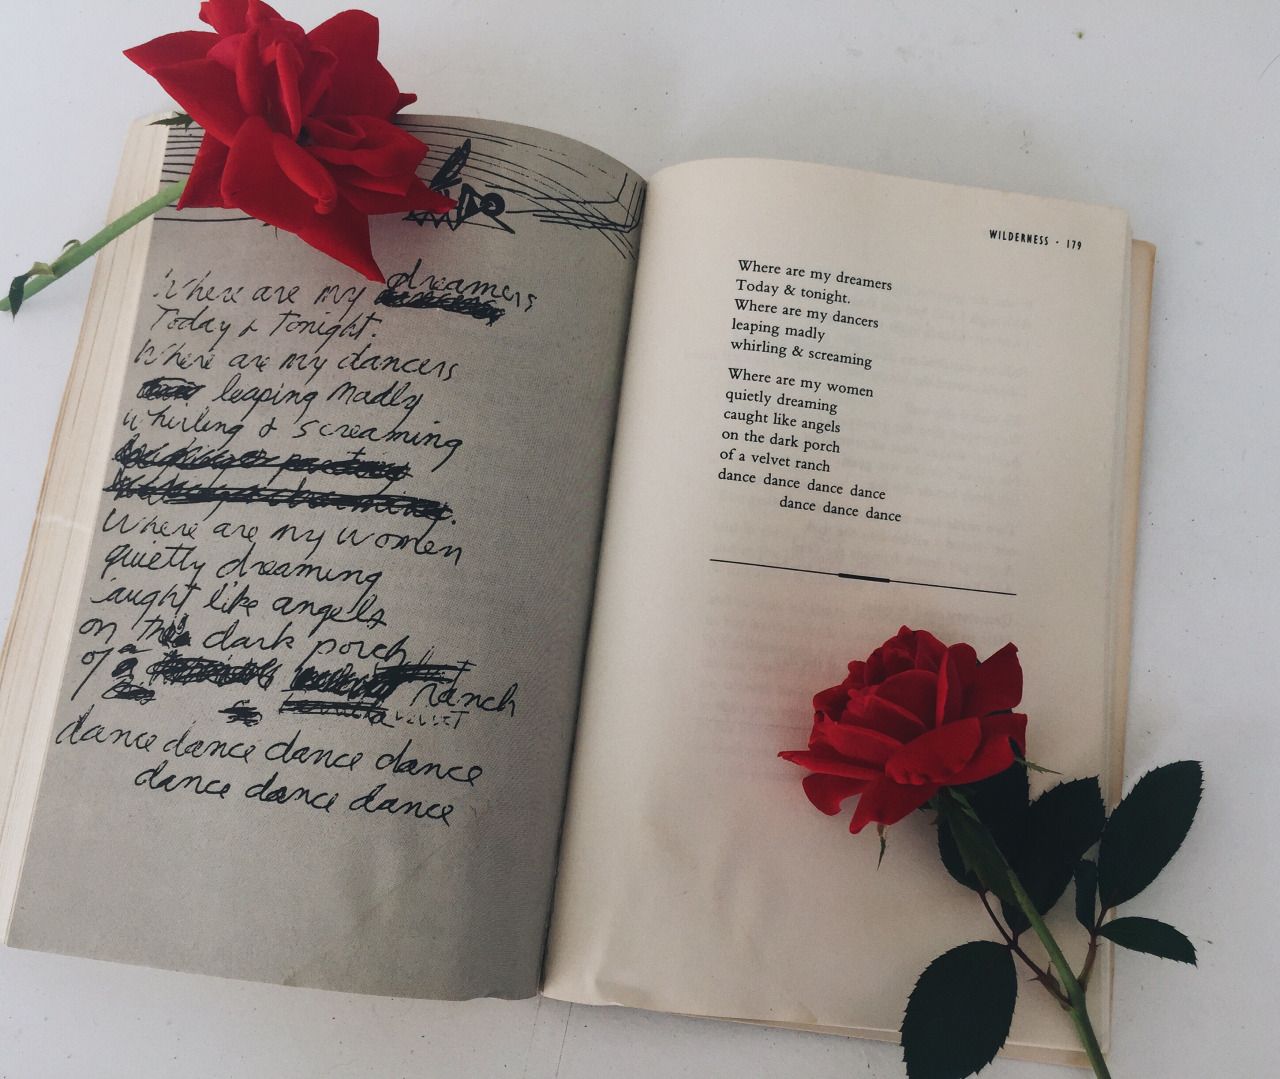 Where are my dreamers
Today & Tonight.
Where are my dancers
leaping Madly
Whirling & screaming
Where are my women
quietly dreaming
caught like angels
on the dark porch
of a ranch
velvet
dance dance dance dance
dance dance dance
WILDERNESS · 179
Where are my dreamers
Today & tonight.
Where are my dancers
leaping madly
whirling & screaming
Where are my women
quietly dreaming
caught like angels
on the dark porch
of a velvet ranch
dance dance dance dance
dance dance dance